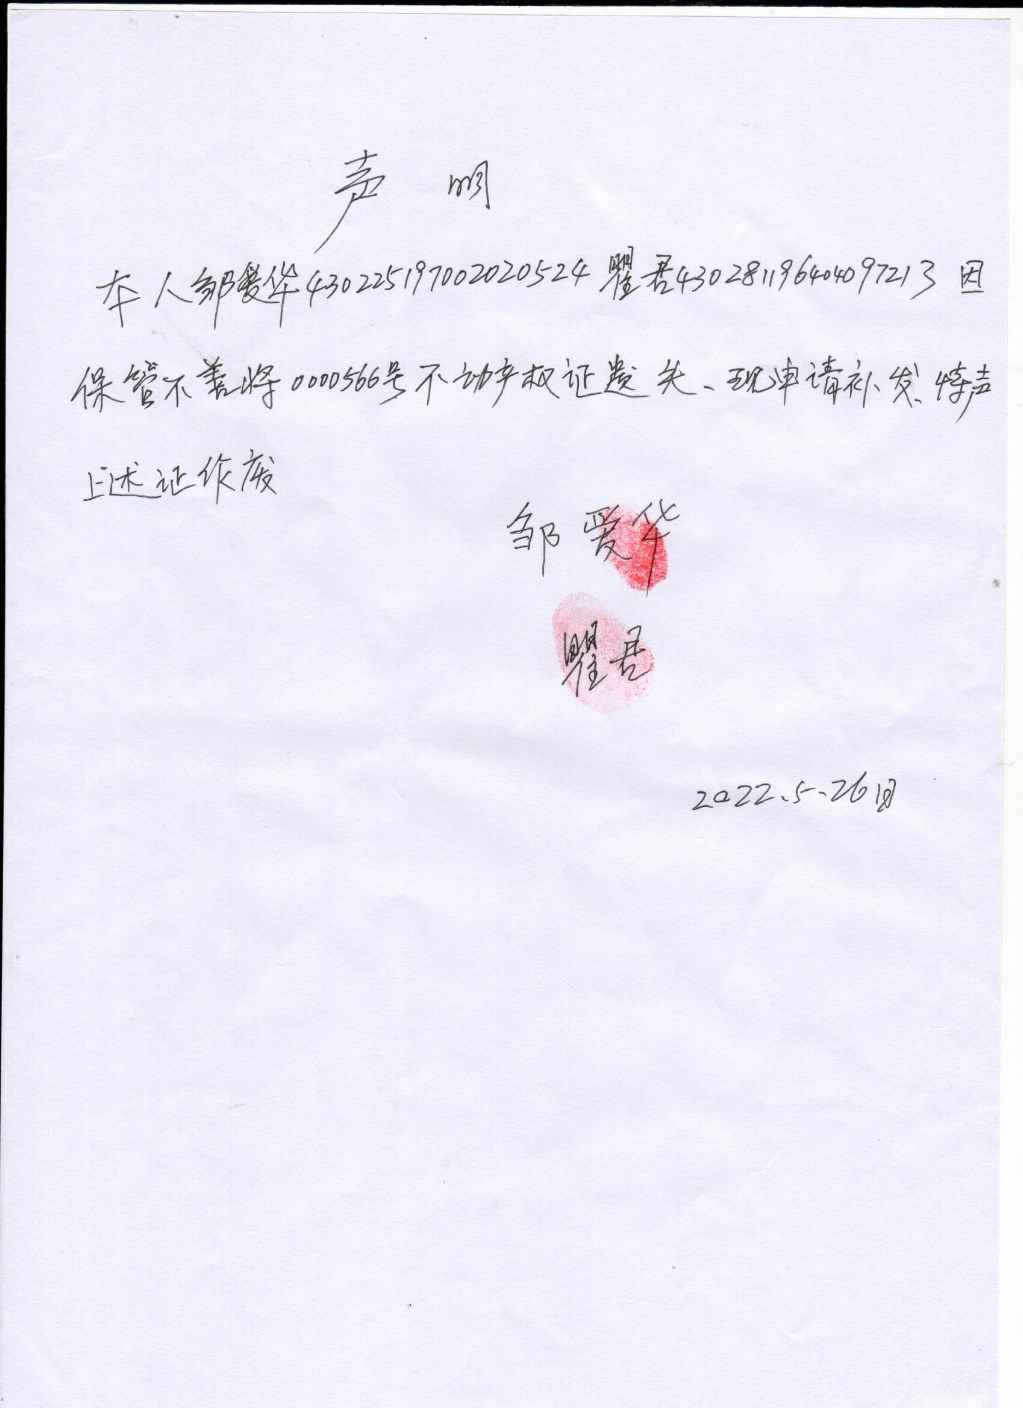 声 明
本人邹爱华430225197002020524瞿君430281196404097213因
保管不善将0000566号不动产权证遗失、现申请补发、特声
上述证作废
邹爱华
瞿君
2022.5.26日